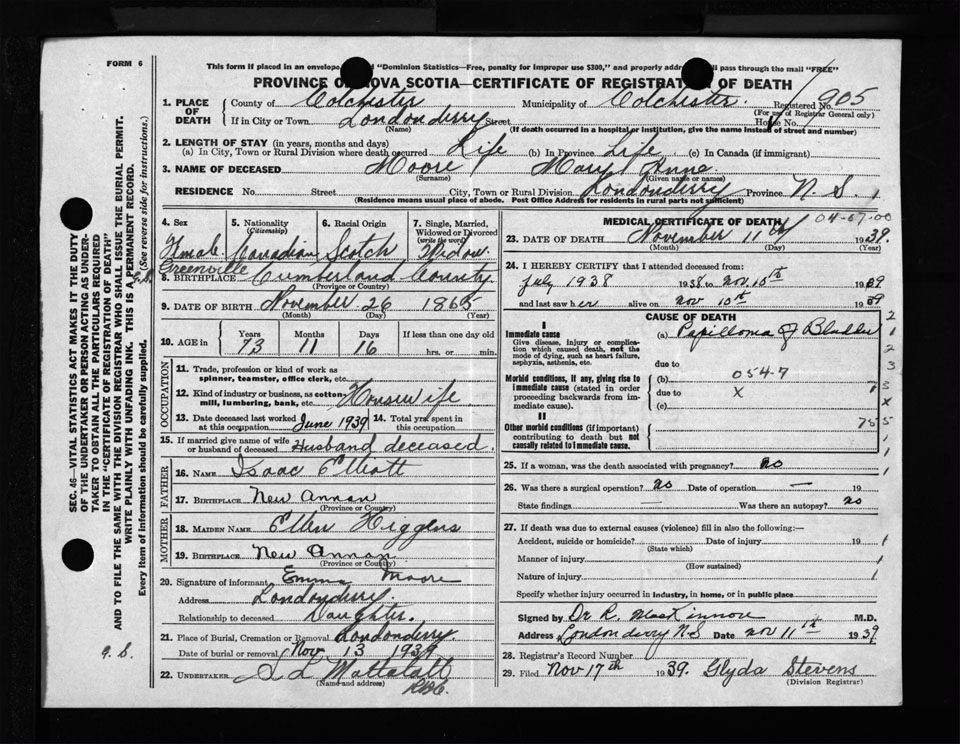 FORM 6
This form if placed in an envelope "Dominion Statistics—Free, penalty for improper use $300," and properly addressed pass through the mail "FREE"
PROVINCE OF NOVA SCOTIA—CERTIFICATE OF REGISTRATION OF DEATH
1. PLACE OF DEATH County of Colchester Municipality of Colchester. Registered No. 905
(For use of Registrar General only)
If in City or Town Londonderry Street House No.
(Name) (If death occurred in a hospital or institution, give the name instead of street and number)
2. LENGTH OF STAY (in years, months and days)
(a) In City, Town or Rural Division where death occurred Life (b) In Province Life (c) In Canada (if immigrant)
3. NAME OF DECEASED Moore Mary Anna
(Surname) (Given name or names)
RESIDENCE No. Street City, Town or Rural Division Londonderry Province N. S.
(Residence means usual place of abode. Post Office Address for residents in rural parts not sufficient)
4. Sex Female
5. Nationality (Citizenship) Canadian
6. Racial Origin Scotch
7. Single, Married, Widowed or Divorced (write the word) Widow
8. BIRTHPLACE Greenville Cumberland County
(Province or Country)
9. DATE OF BIRTH November 26 1865
(Month) (Day) (Year)
10. AGE in Years 73 Months 11 Days 16 If less than one day old hrs. or min.
OCCUPATION
11. Trade, profession or kind of work as spinner, teamster, office clerk, etc.
12. Kind of industry or business, as cotton-mill, lumbering, bank, etc. Housewife
13. Date deceased last worked at this occupation June 1939 14. Total yrs spent in this occupation
15. If married give name of wife or husband of deceased Husband deceased.
FATHER
16. NAME Isaac Elliott
17. BIRTHPLACE New Annan
(Province or Country)
MOTHER
18. MAIDEN NAME Ellen Higgens
19. BIRTHPLACE New Annan
(Province or Country)
20. Signature of informant Emma Moore
Address Londonderry.
Relationship to deceased Daughter.
21. Place of Burial, Cremation or Removal Londonderry
Date of burial or removal Nov 13 1939
22. UNDERTAKER
(Name and address)
MEDICAL CERTIFICATE OF DEATH
04-07-00
23. DATE OF DEATH November 11th 1939.
(Month) (Day) (Year)
24. I HEREBY CERTIFY that I attended deceased from:
July 1938 1938 to Nov. 10th 1939
and last saw her alive on Nov 10th 1939
CAUSE OF DEATH
I
Immediate cause (a) Papilloma of Bladder
Give disease, injury or complication which caused death, not the mode of dying, such as heart failure, asphyxia, asthenia, etc.
due to
Morbid conditions, if any, giving rise to immediate cause (stated in order proceeding backwards from immediate cause).
(b) 054-7
due to X
(c)
II
Other morbid conditions (if important) contributing to death but not causally related to immediate cause.
25. If a woman, was the death associated with pregnancy? No
26. Was there a surgical operation? No Date of operation — 19
State findings — Was there an autopsy? No
27. If death was due to external causes (violence) fill in also the following:—
Accident, suicide or homicide? Date of injury 19
(State which)
Manner of injury
(How sustained)
Nature of injury
Specify whether injury occurred in industry, in home, or in public place
Signed by Dr R. MacKinnon M.D.
Address Londonderry N.S Date Nov 11th 1939
28. Registrar's Record Number
29. Filed Nov 17th 1939. Glyda Stevens
(Division Registrar)
SEC. 46—VITAL STATISTICS ACT MAKES IT THE DUTY
OF THE UNDERTAKER OR PERSON ACTING AS UNDERTAKER TO OBTAIN ALL THE PARTICULARS REQUIRED
IN THE "CERTIFICATE OF REGISTRATION OF DEATH"
AND TO FILE THE SAME WITH THE DIVISION REGISTRAR WHO SHALL ISSUE THE BURIAL PERMIT.
WRITE PLAINLY WITH UNFADING INK. THIS IS A PERMANENT RECORD.
Every item of information should be carefully supplied. (See reverse side for instructions.)